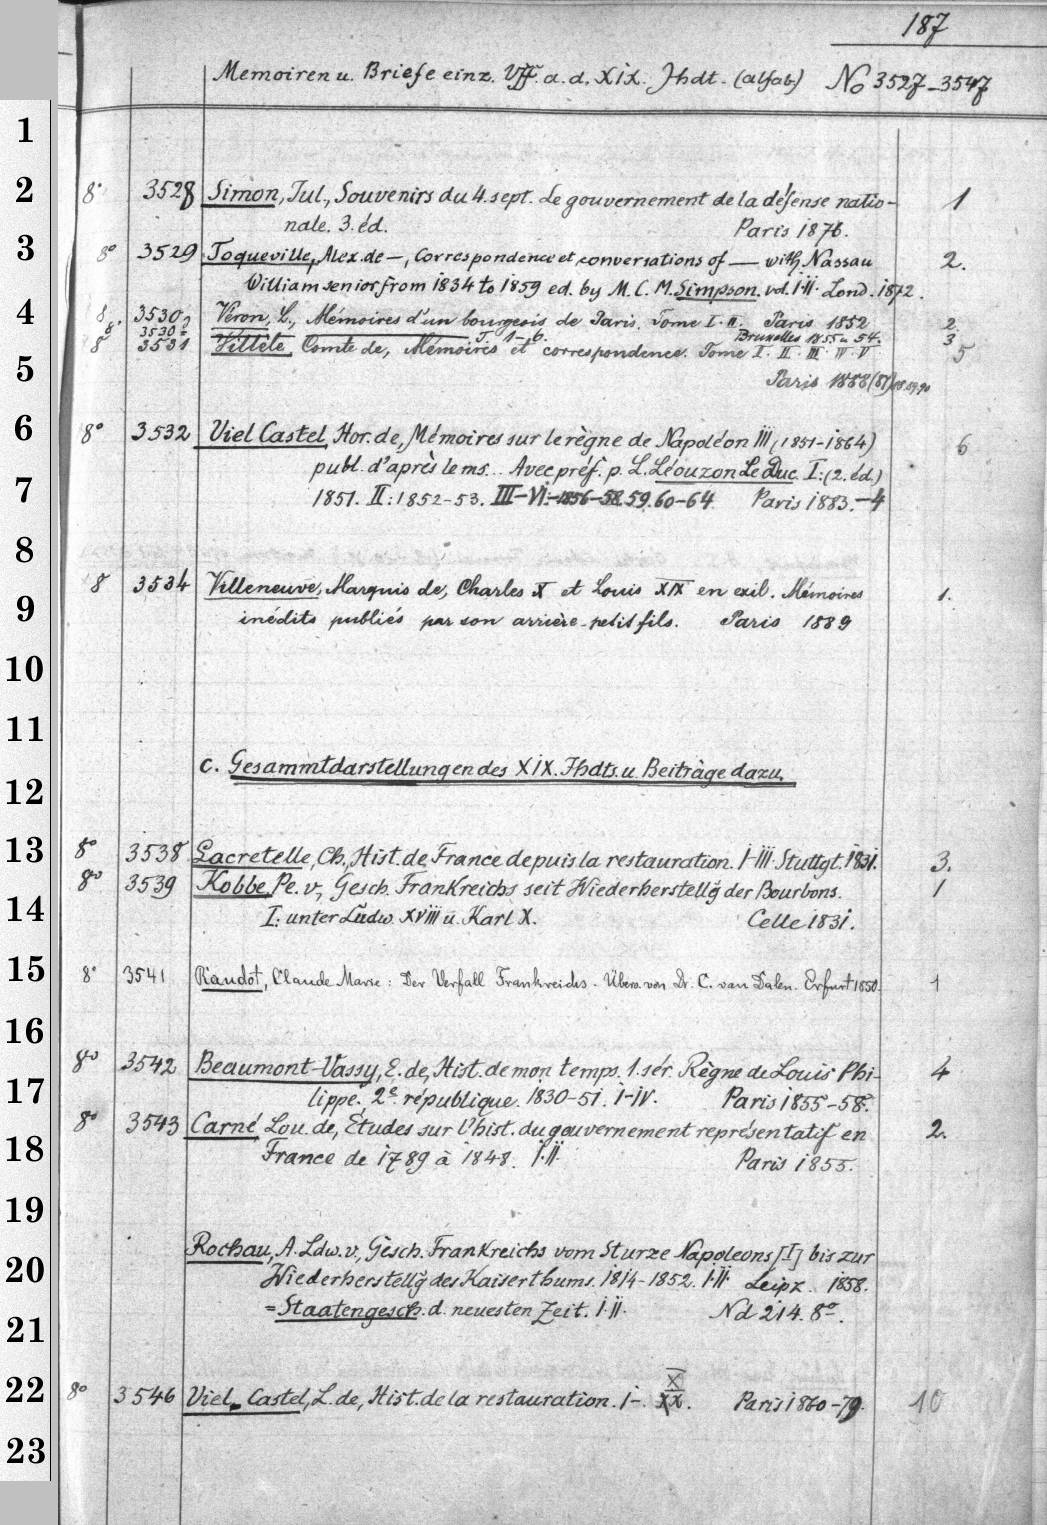 187
Memoiren u. Briefe einz. Vff. a. d. XIX. Jhdt. (alfab.) No 3527-3547
1
2 8° 3528 Simon, Jul., Souvenirs du 4. sept. Le gouvernement de la défense natio- 1
nale. 3. éd. Paris 1876.
3 8° 3529 Toqueville, Alex. de —, Correspondence et conversations of — with Nassau 2.
William senior from 1834 to 1859 ed. by M. C. M. Simpson. vol. I-II. Lond. 1872.
4 8. 3530 Véron, L., Mémoires d'un bourgeois de Paris. Tome I. II. Paris 1852 2.
8. 3530 T. 1-6. Bruxelles 1855 u 54. 3
8 3531 Villèle, Comte de, Mémoires et correspondence. Tome I. II. III. IV. V 5
5 Paris 1888 (87) 88.89.90
6 8° 3532 Viel Castel, Hor. de, Mémoires sur le règne de Napoléon III (1851-1864) 6
publ. d'après le ms... Avec préf. p. L. Léouzon Le Duc. I: (2. éd.)
7 1851. II: 1852-53. III-VI: 1856-58. 59. 60-64 Paris 1883.-4
8
8 3534 Villeneuve, Marquis de, Charles X et Louis XIX en exil. Mémoires 1.
9 inédits publiés par son arrière-petit fils. Paris 1889
10
11
c. Gesammtdarstellungen des XIX. Jhdts. u. Beiträge dazu.
12
13 8° 3538 Lacretelle, Ch., Hist. de France depuis la restauration. I-III. Stuttgt. 1831. 3.
8vo 3539 Kobbe, Pe. v., Gesch. Frankreichs seit Wiederherstellg̃ der Bourbons. 1
14 I: unter Ludw. XVIII u. Karl X. Celle 1831.
15 8° 3541 Raudot, Claude Marie: Der Verfall Frankreichs. Übers. von Dr. C. van Dalen. Erfurt 1850. 1
16
8vo 3542 Beaumont-Vassy, E. de, Hist. de mon temps. 1. sér. Règne de Louis Phi- 4
17 lippe. 2e république. 1830-51. I-IV. Paris 1855-58.
8° 3543 Carné Lou. de, Études sur l'hist. du gouvernement représentatif en 2.
18 France de 1789 à 1848. I.II. Paris 1855.
19
Rochau, A. Ldw. v., Gesch. Frankreichs vom Sturze Napoleons [I] bis zur
20 Wiederherstellg̃ des Kaiserthums. 1814-1852. I.II. Leipz. 1858.
= Staatengesch. d. neuesten Zeit. I.II. Nd 214. 8°.
21
X
22 8° 3546 Viel-Castel, L. de, Hist. de la restauration. I-. XX. Paris 1860-79. 10
23